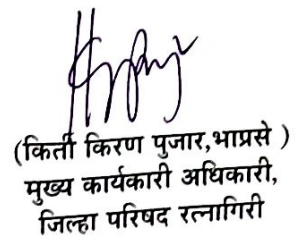 (किर्ती किरण पुजार,भाप्रसे )
मुख्य कार्यकारी अधिकारी,
जिल्हा परिषद रत्नागिरी